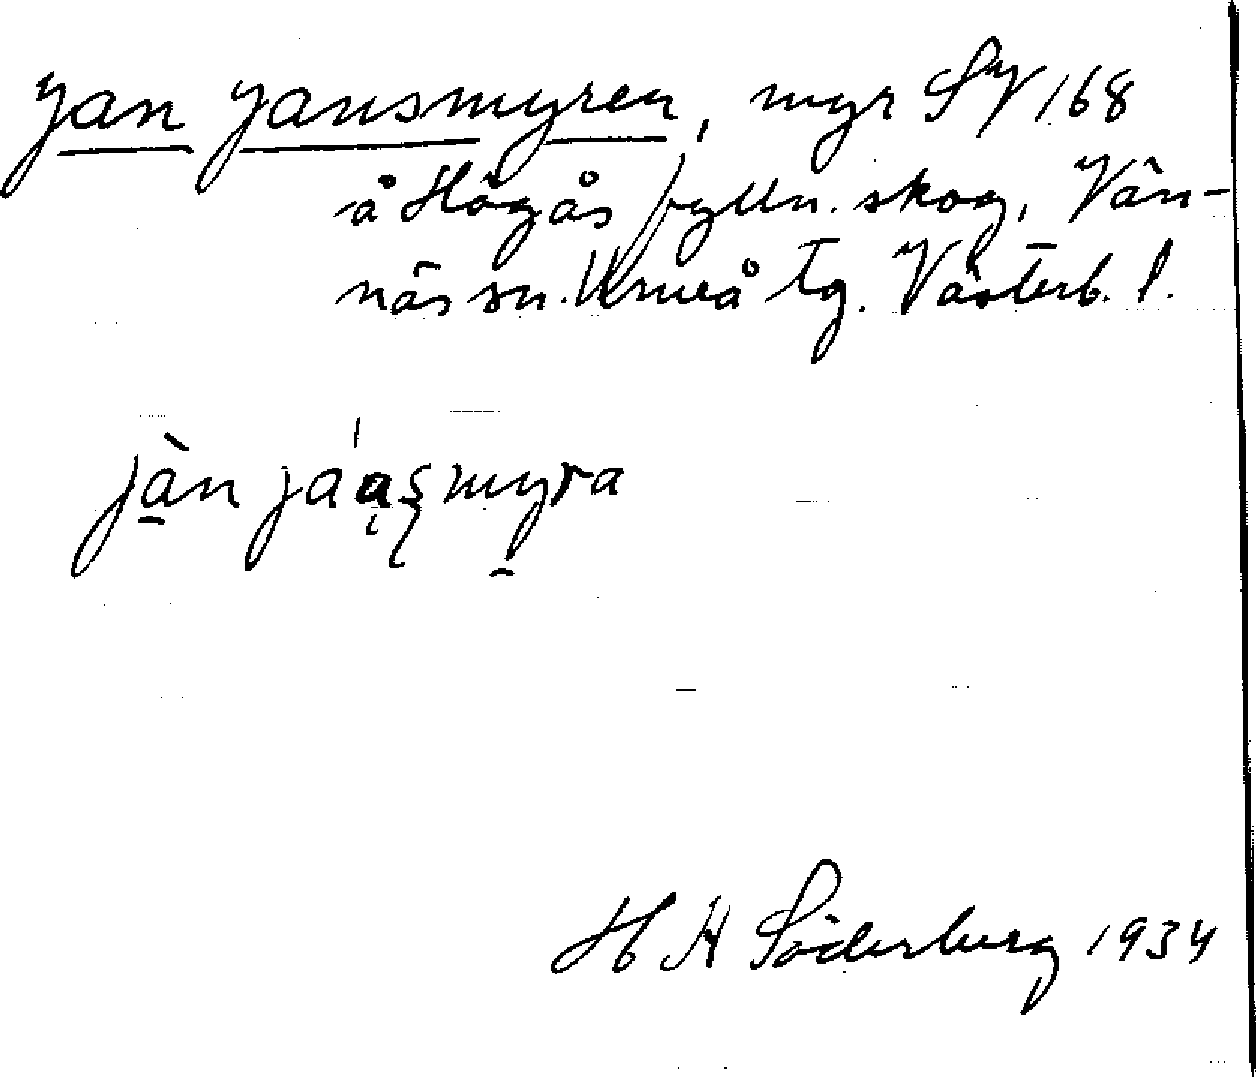 Jan Jansmyren, myr SV 168
å Högås bylln. skog, Vän-
näs sn. Umeå tg. Västerb. l.
jàn jáasmyra
H A Söderberg 1934